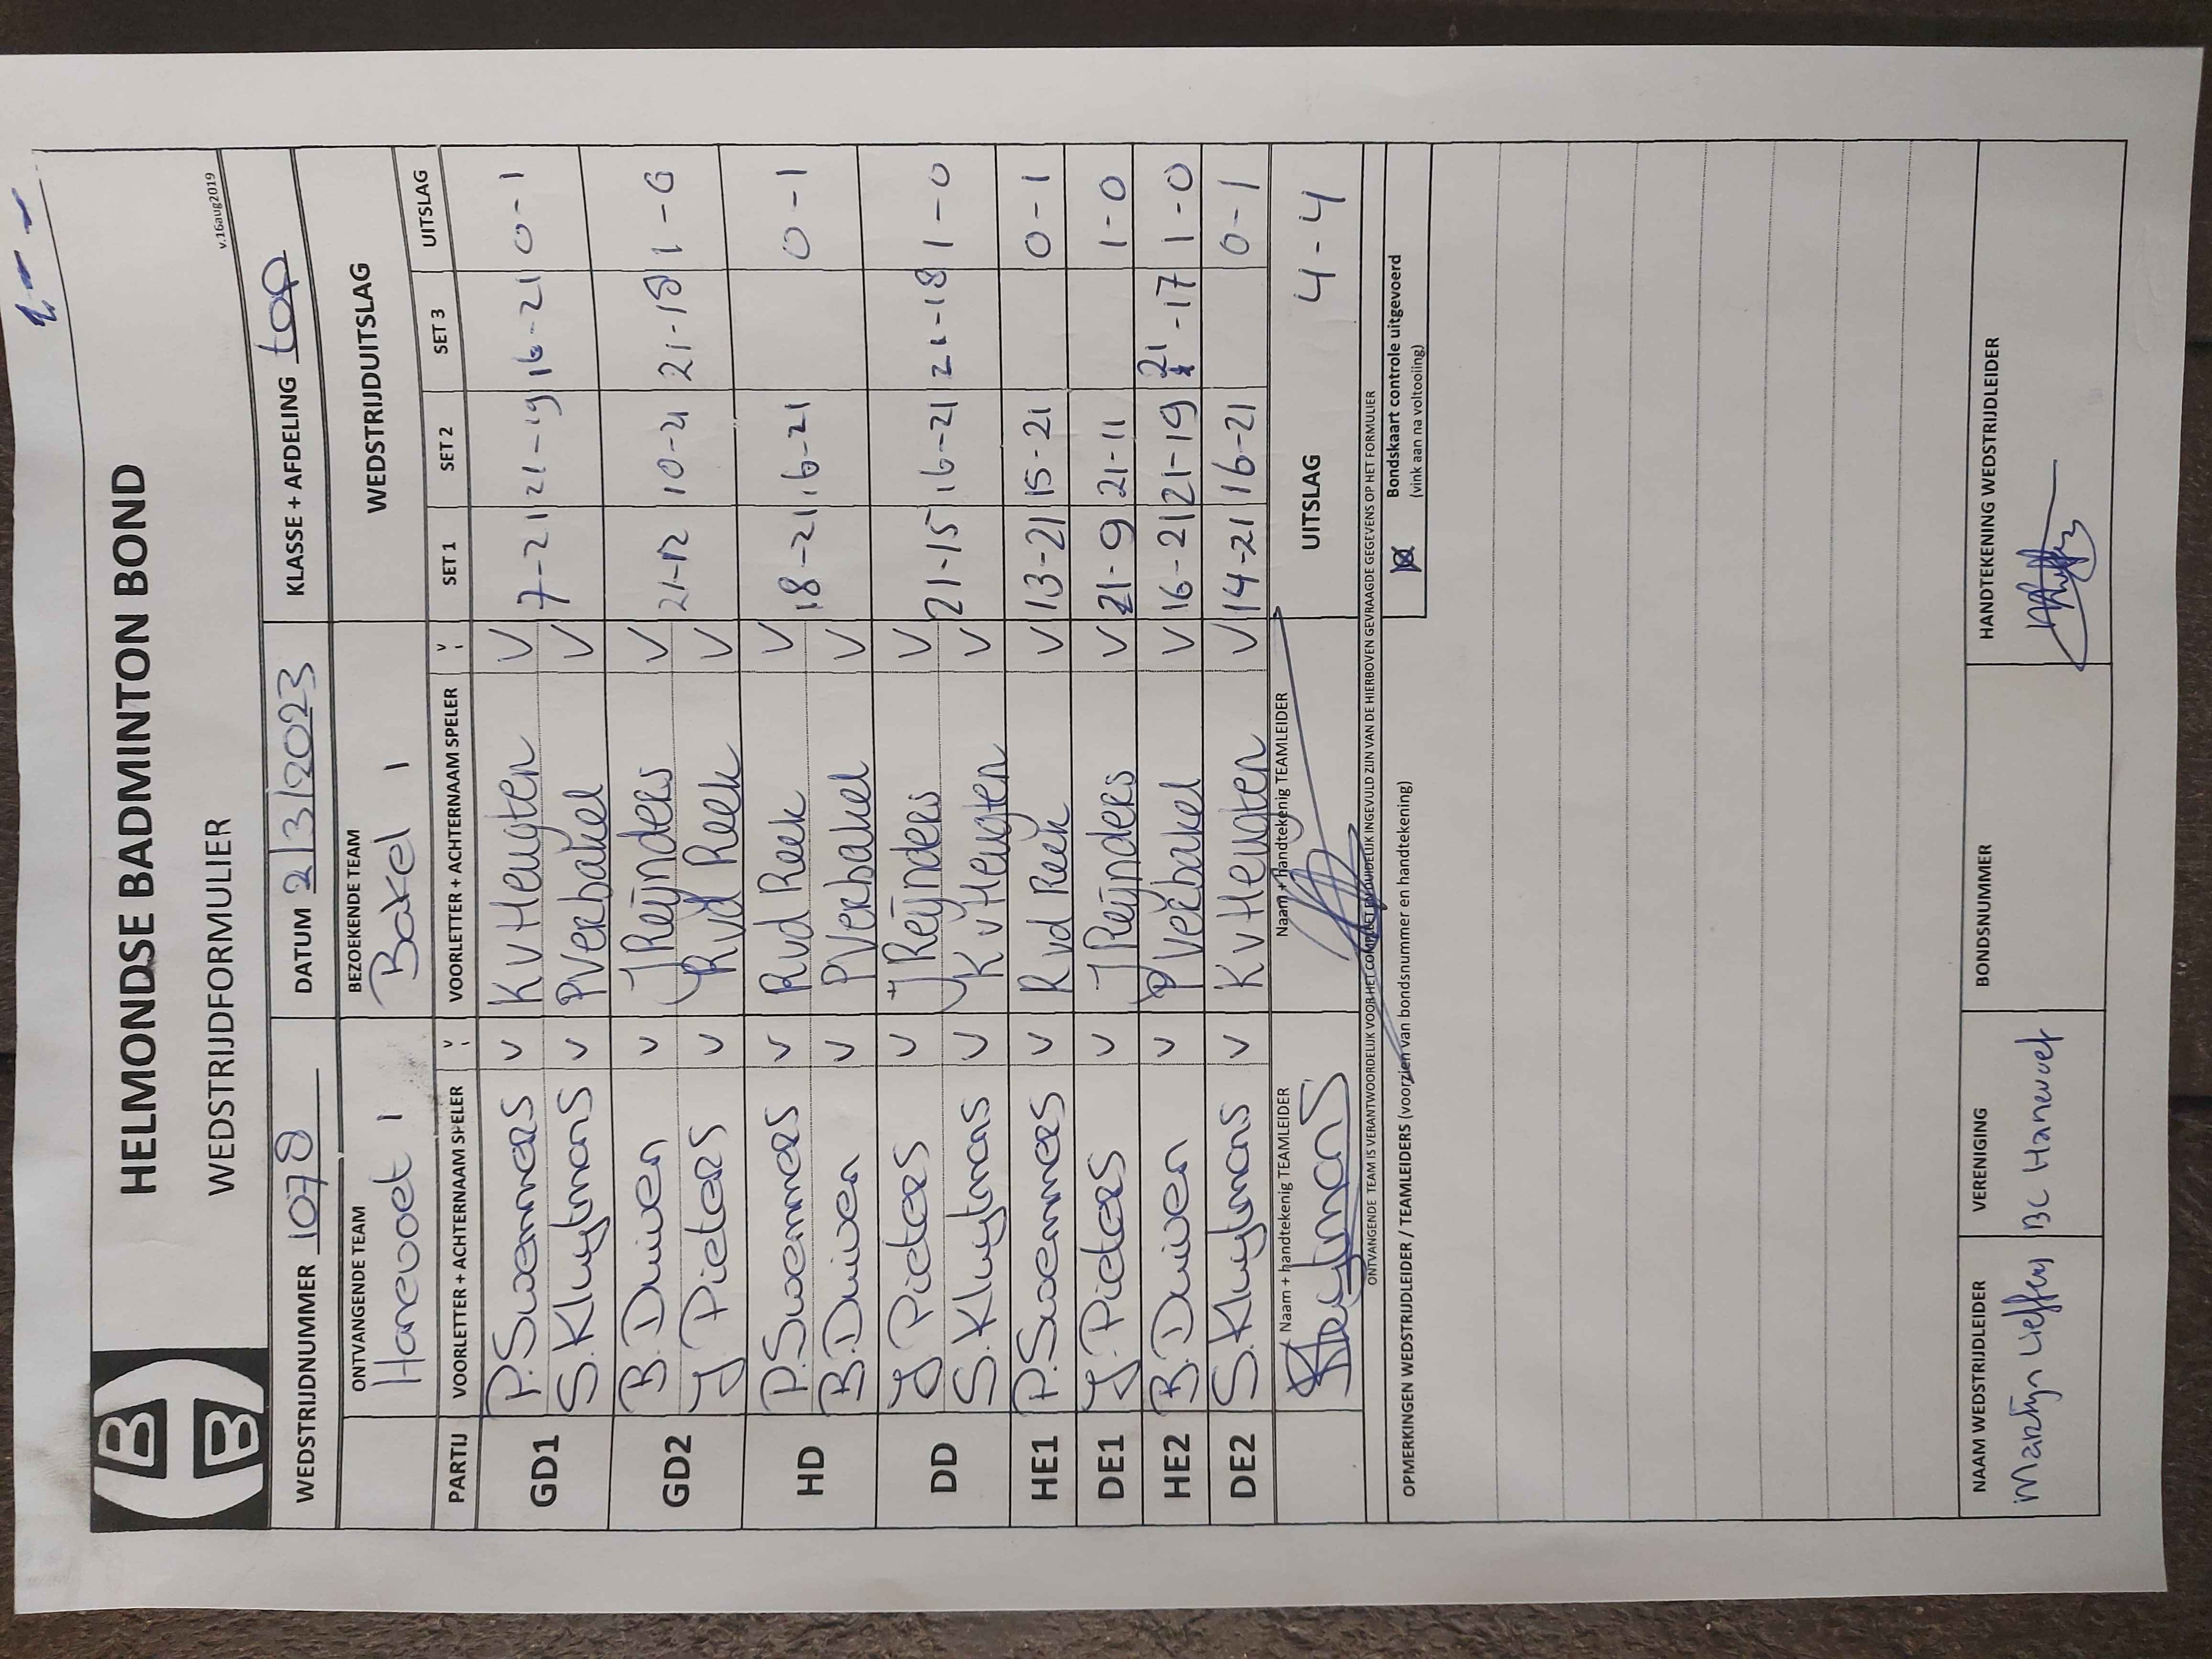 HELMONDSE BADMINTON BOND
WEDSTRIJDFORMULIER
v.16aug2019
WEDSTRIJDNUMMER 1078 DATUM 2/3/2023 KLASSE + AFDELING top
ONTVANGENDE TEAM BEZOEKENDE TEAM WEDSTRIJDUITSLAG
Hanevoet 1 Bakel 1
PARTIJ VOORLETTER + ACHTERNAAM SPELER V VOORLETTER + ACHTERNAAM SPELER V SET 1 SET 2 SET 3 UITSLAG
GD1 P. Swemmers V K v Heugten V 7-21 21-19 16-21 0-1
S. Kluytmans V P Verbakel V
GD2 B. Duiven V J Reijnders V 21-12 10-21 21-18 1-0
J. Pieters V R vd Reek V
HD P. Swemmers V R vd Reek V 18-21 16-21 0-1
B. Duiven V P Verbakel V
DD J. Pieters V J Reijnders V 21-15 16-21 21-18 1-0
S. Kluytmans V K v Heugten V
HE1 P. Swemmers V R vd Reek V 13-21 15-21 0-1
DE1 J. Pieters V J Reijnders V 21-9 21-11 1-0
HE2 B. Duiven V P Verbakel V 16-21 21-19 21-17 1-0
DE2 S. Kluytmans V K v Heugten V 14-21 16-21 0-1
Naam + handtekenig TEAMLEIDER Naam + handtekenig TEAMLEIDER UITSLAG 4-4
ONTVANGENDE TEAM IS VERANTWOORDELIJK VOOR HET COMPLEET EN DUIDELIJK INGEVULD ZIJN VAN DE HIERBOVEN GEVRAAGDE GEGEVENS OP HET FORMULIER
OPMERKINGEN WEDSTRIJDLEIDER / TEAMLEIDERS (voorzien van bondsnummer en handtekening)
Bondskaart controle uitgevoerd
(vink aan na voltooiing)
NAAM WEDSTRIJDLEIDER VERENIGING BONDSNUMMER HANDTEKENING WEDSTRIJDLEIDER
Martijn Lieffers BC Hanevoet